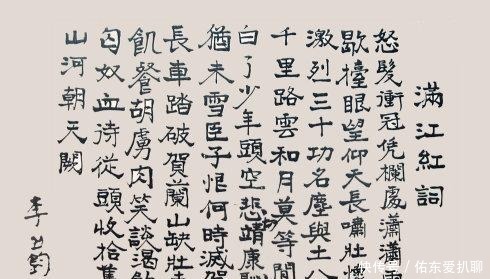 滿江紅詞
怒髮衝冠凭欄處瀟瀟
歇擡眼望仰天長嘯壯
激烈三十功名塵與土八
千里路雲和月莫等閒
白了少年頭空悲切靖康恥
猶未雪臣子恨何時滅駕
長車踏破賀蘭山缺壯
飢餐胡虜肉笑談渴飲
匈奴血待從頭收拾舊
山河朝天闕
李
快传号/佑东爱扒聊